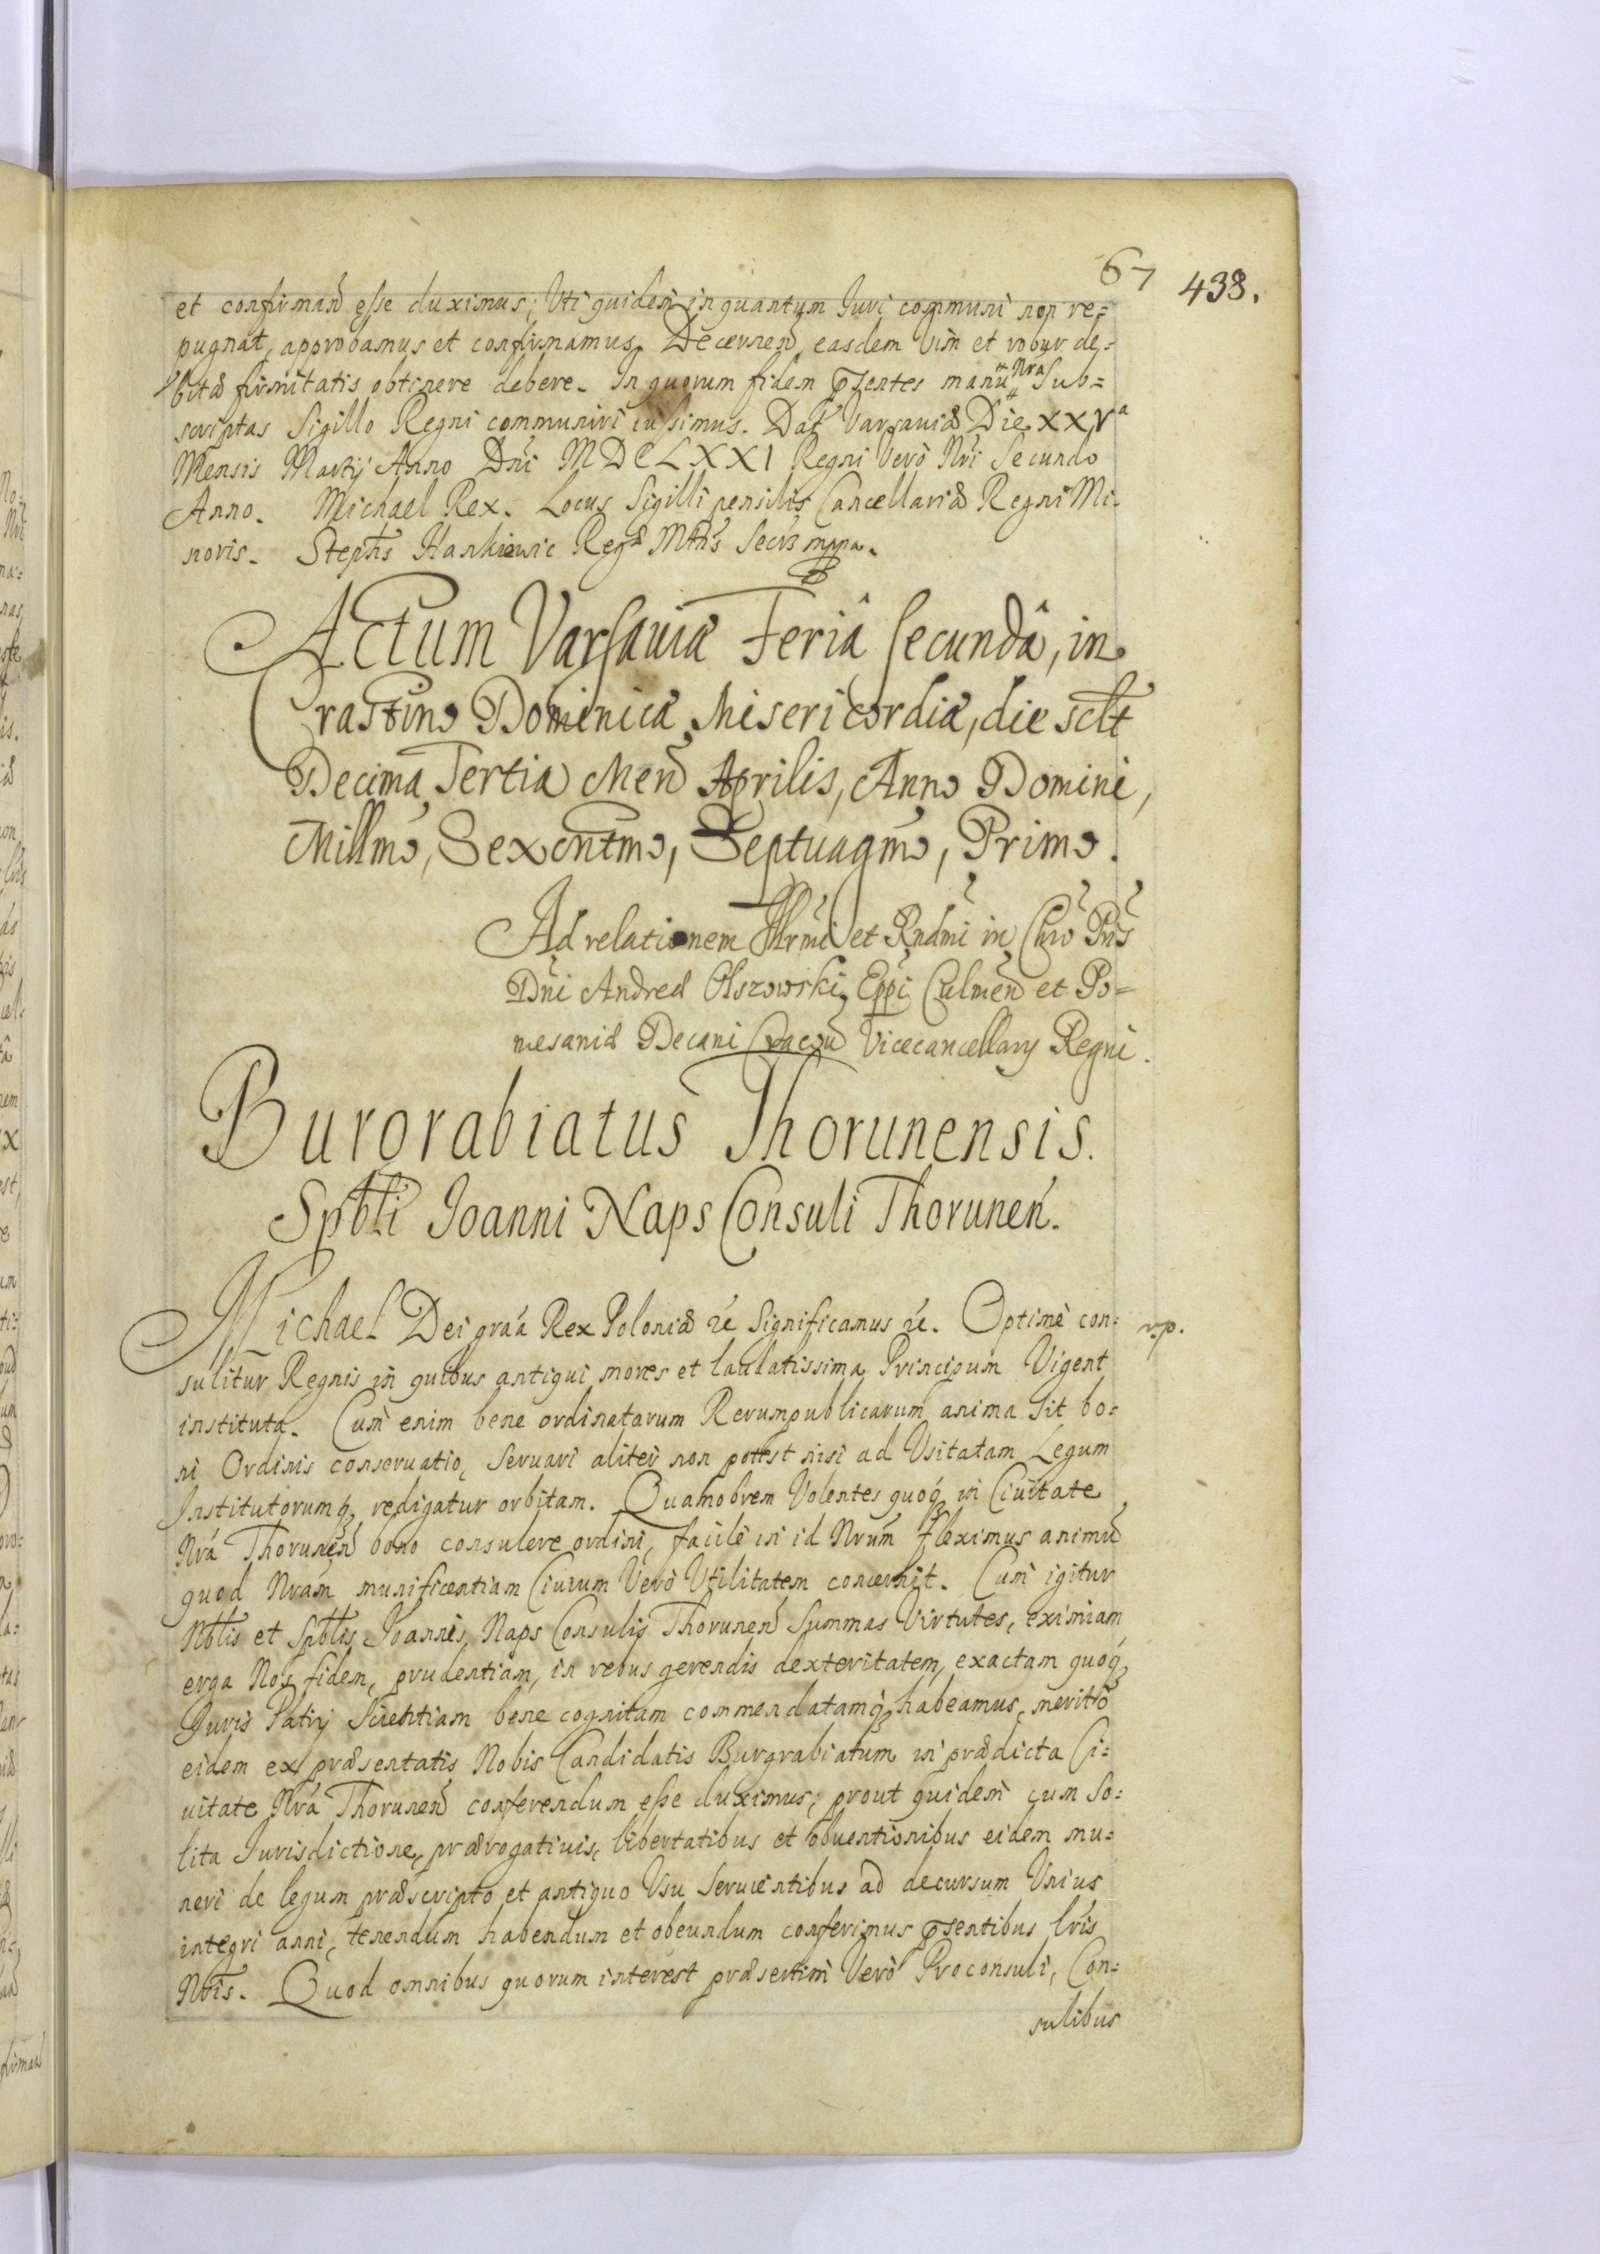 67 438.
et confirmand esse duximus; Uti quidem in quantum Juri communi non re=
pugnat, approbamus et confirmamus. Decernen̄ easdem Vim et robur de=
bitæ firmitatis obtinere debere. In quorum fidem p̄sentes manū Nra Sub=
scriptas Sigillo Regni communiri iussimus. Dat Varsaviæ Die XXVa
Mensis Martij Anno Dni MDCLXXI Regni Verò Nri Secundo
Anno. Michael Rex. Locus Sigilli pensilis Cancellariæ Regni Mi-
noris. Stephs Hankiewic Regæ Mttis Secrs mppa.
Actum Varsaviæ Feriâ secundâ, in
Crastino Dominicæ Misericordiæ, die sclt
Decima Tertia Men̄ Aprilis, Anno Domini,
Millmo, Sexcntmo, Septuagmo, Primo.
Ad relationem Illrmi et Rndmi in Chro Pris
Dni Andreæ Olszowski, Eppi Culmen̄ et Po=
mesaniæ Decani Cracou̅ Vicecancellary Regni.
Burgrabiatus Thorunensis.
Spbli Joanni Naps Consuli Thorunen̄.
Michael Dei gra'a Rex Poloniæ re Significamus re. Optimè con- r.p.
sulitur Regnis in quibus antiqui mores et laudatissima Principum Vigent
instituta. Cum enim bene ordinatarum Rerumpublicarum anima sit bo-
ni Ordinis conservatio, Servari aliter non potest nisi ad Usitatam Legum
Institutorumq, redigatur orbitam. Quamobrem Volentes quoq in Ciuitate
Nrá Thorunen̄ bono consulere ordini, facilè in id Nrum fleximus animū
quod Nram munificentiam Ciuium Verò Utilitatem concernit. Cum igitur
Nblis et Spblis Joannis Naps Consulis Thorunen̄ Summas Virtutes, eximiam
erga Nos fidem, prudentiam, in rebus gerendis dexteritatem, exactam quoq
Juris Patrij Scientiam bene cognitam commendatamq habeamus, meritò
eidem ex præsentatis Nobis Candidatis Burgrabiatum in prædicta Ci-
uitate Nrá Thorunen̄ conferendum esse duximus; prout quidem cum So-
lita Jurisdictione, prærogativis, libertatibus et obuentionibus eidem mu-
neri de legum præscripto et antiquo Usu Seruientibus ad decursum Unius
integri anni, tenendum habendum et obeundum conferimus p̄sentibus lris
Nris. Quod omnibus quorum interest præsertim Verò Proconsuli, Con-
sulibus